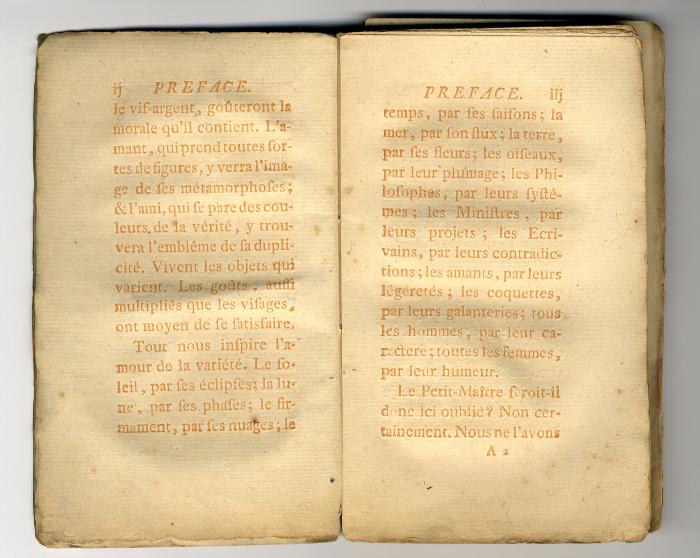 ij PREFACE.
le vif-argent, goûteront la
morale qu'il contient. L'a-
mant, qui prend toutes ſor-
tes de figures, y verra l'ima-
ge de ſes métamorphoſes;
& l'ami, qui ſe pare des cou-
leurs de la vérité, y trou-
vera l'embléme de ſa dupli-
cité. Vivent les objets qui
varient. Les goûts, auſſi
multipliés que les viſages,
ont moyen de ſe ſatisfaire.
Tout nous inſpire l'a-
mour de la variété. Le ſo-
leil, par ſes éclipſes; la lu-
ne, par ſes phaſes; le fir-
mament, par ſes nuages; le
PREFACE. iij
temps, par ſes ſaiſons; la
mer, par ſon flux; la terre,
par ſes fleurs; les oiſeaux,
par leur plumage; les Phi-
loſophes, par leurs ſyſtê-
mes; les Miniſtres, par
leurs projets; les Ecri-
vains, par leurs contradic-
tions; les amants, par leurs
légéretés; les coquettes,
par leurs galanteries; tous
les hommes, par leur ca-
ractere; toutes les femmes,
par leur humeur.
Le Petit-Maître ſeroit-il
donc ici oublié? Non cer-
tainement. Nous ne l'avons
A 2